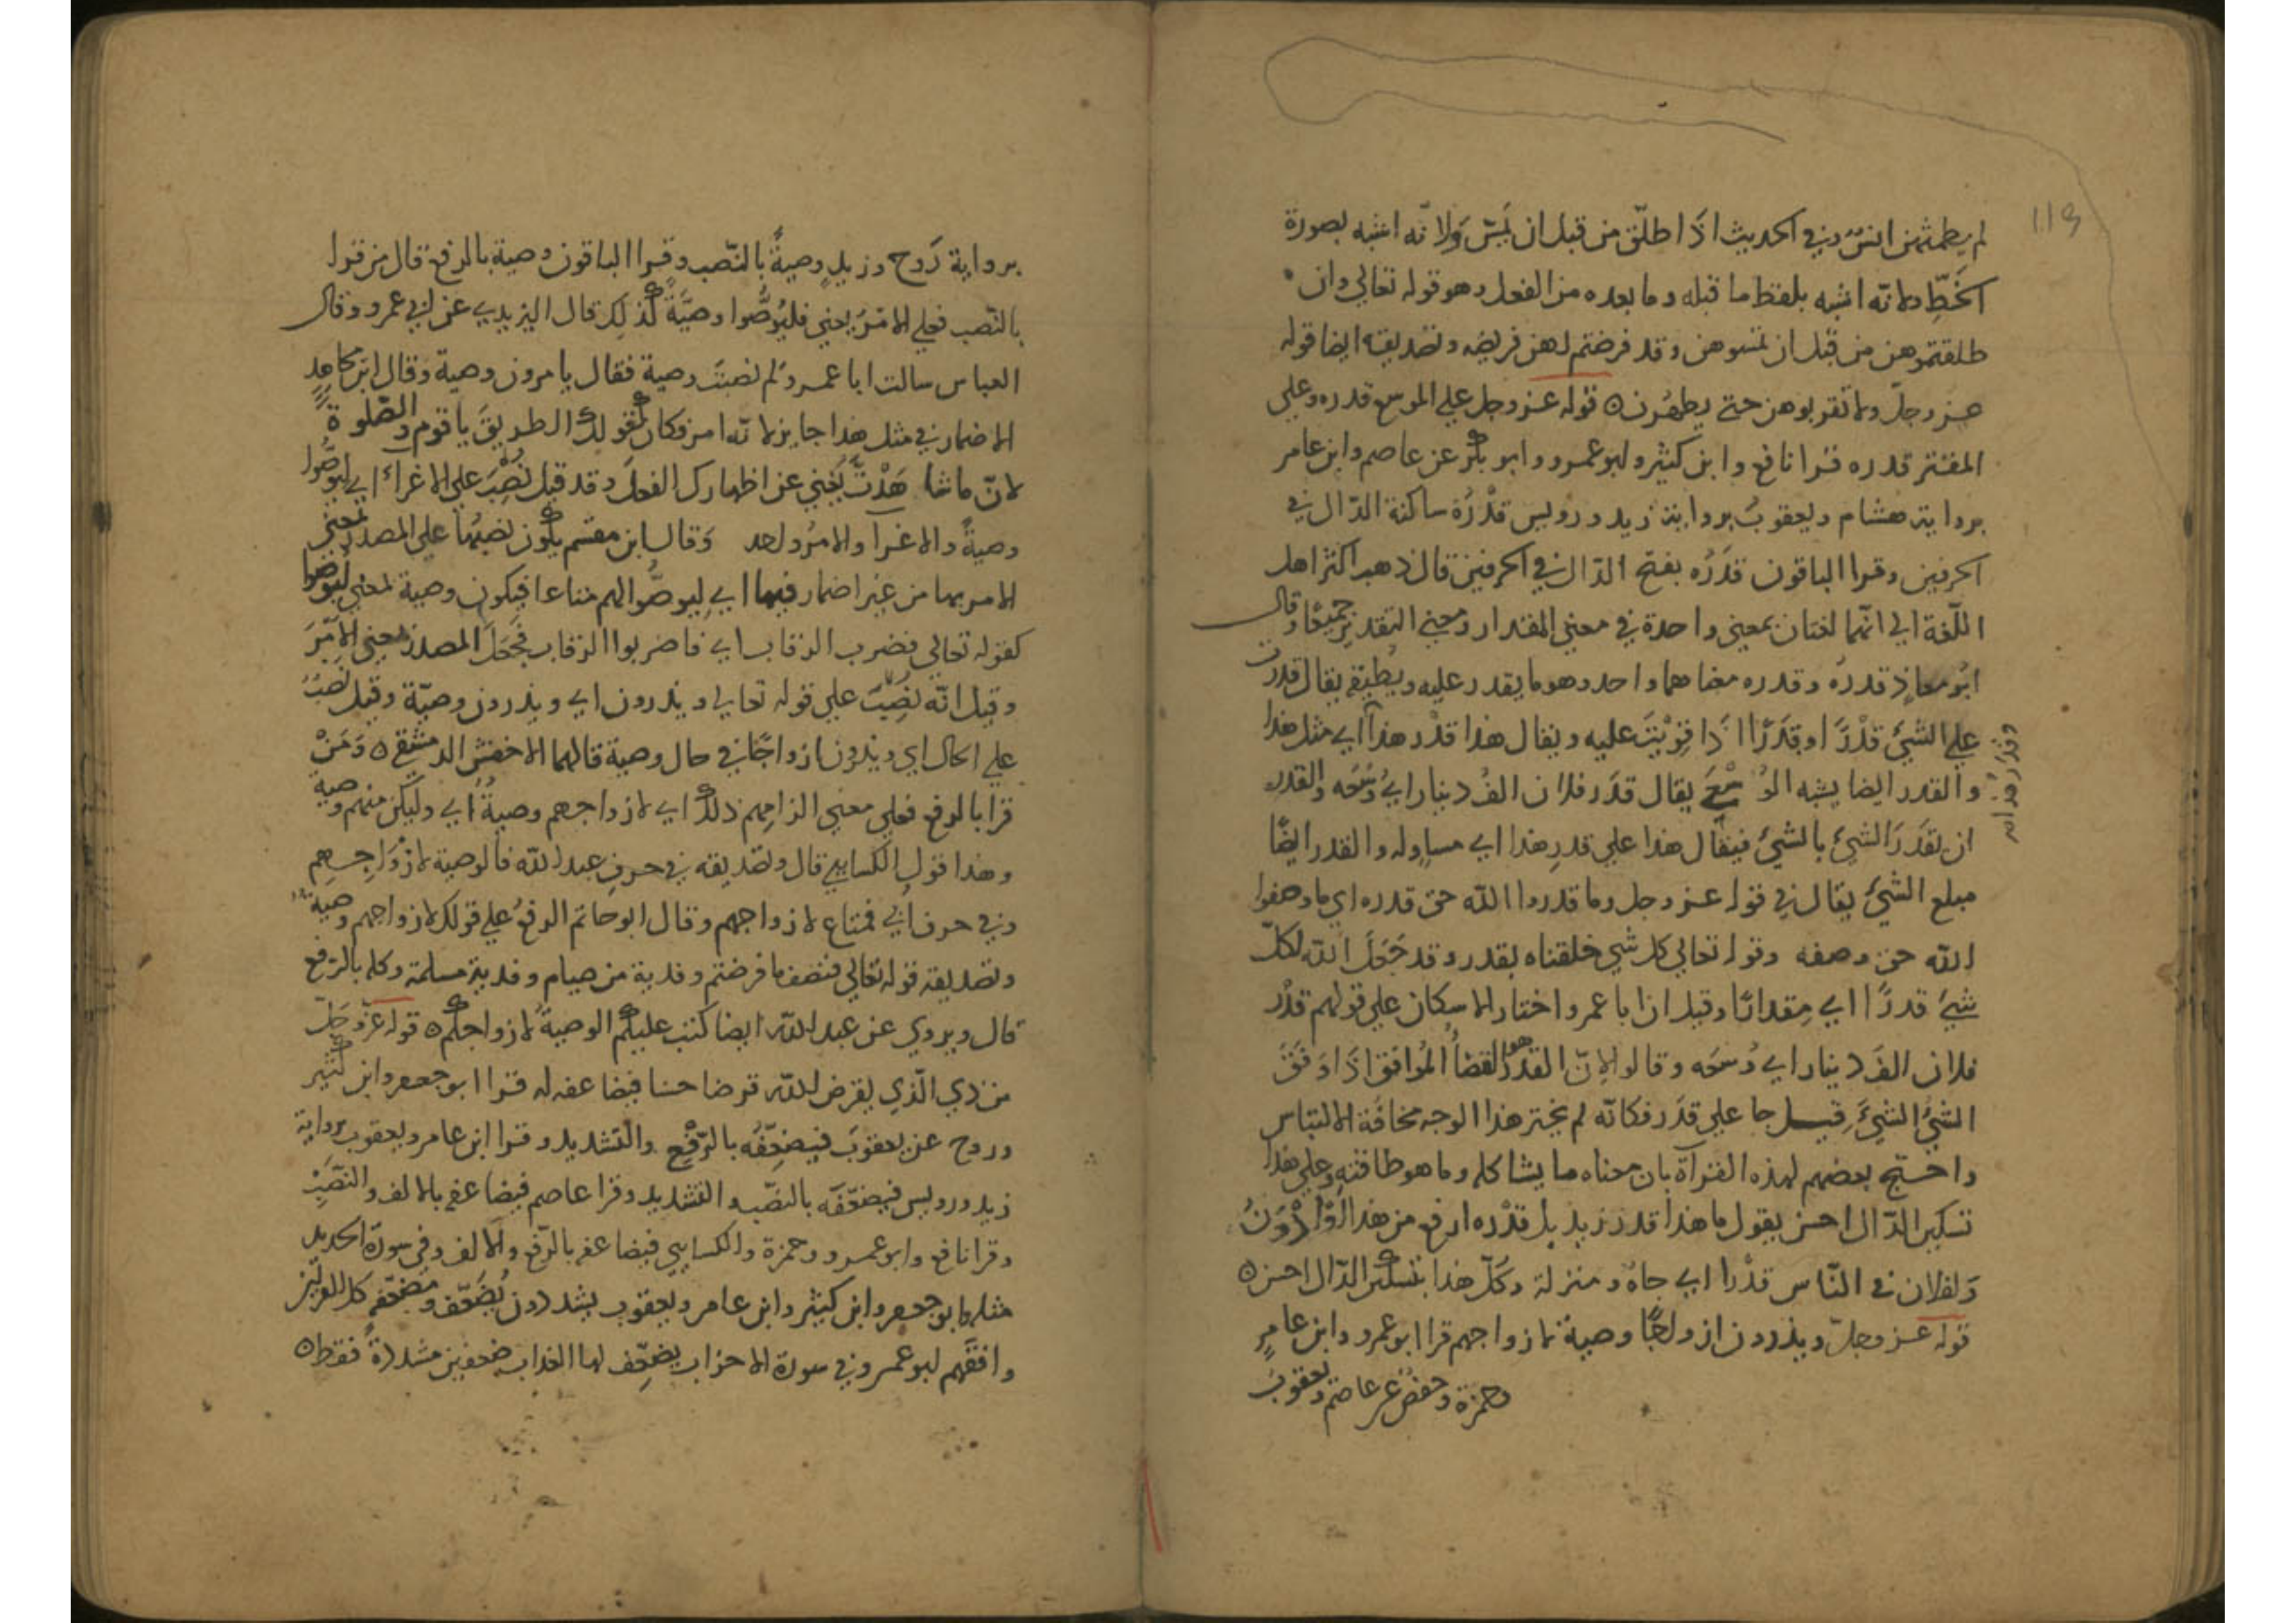 لم يطمثهن انس وفي الحديث اذا طلّق من قبل ان يَمَسّ وَلانّه اشبه بصورة
الخَطِّ ولانّه اشبه بلفظ ما قبله وما بعده من الفعل وهو قوله تعالي وان
طلقتموهن من قبل ان تمسوهن وقد فرضتم لهن فريضه وتصديقه ايضا قوله
عز وجلّ ولا تقربوهن حتى يطهُرن ٥ قوله عز وجل علي الموسع قدره وعلي
المقتر قدره قرا نافع وابن كثير وابو عمرو وابو بكر عن عاصم وابن عامر
برواية هشام ويعقوبُ برواية زيد ورويس قدْرُه ساكنة الدّال في
الحرفين وقرا الباقون قدَرُه بفتح الدّال في الحرفين قال ذهب اكثر اهل
اللّغة الي انّهما لغتان بمعني واحدة في معني المقدار ومعني التقدير جميعًا وقال
ابُو معاذٍ قدرهُ وقدره معناهما واحد وهو ما يقدر عليه ويُطيقه يقال قدرت
علي الشيئ قدْرًا وقدَرًا اذا قَوِيْتَ عليه ويقال هذا قدْر هذا اي مثل هذا
والقدر ايضا يشبه الوُسْعَ يقال قدَر فلان الفُ دينار اي وُسْعَه والقدر
ان تقدَرَ الشيئ بالشيئ فيقال هذا علي قدرِ هذا اي مساوٍ له والقدر ايضًا
مبلغ الشيئ يقال في قوله عز وجل وما قدروا الله حق قدره اي ما وصفوا
الله حق وصفه وقوله تعالي كل شي خلقناه بقدر وقد جَعَلَ الله لكلّ
شيئ قدرًا اي مِقدارًا وقيل ان ابا عمرو اختار الاسكان علي قولهم قدْر
فلان الفَ دينار اي وُسعَه وقالوا لانّ القدَرَ هو القضاُ المُوافق اذا وَفقَ
الشيُ الشيئَ قيل جا علي قدَر فكانّه لم يختر هذا الوجه مخافة الالتباس
واحتج بعضهم لهذه القراة بان معناه ما يشاكله وما هو طاقته وعلي هذا
تسكين الدّال احسن يقول ما هذا قدر زيد بل قدْره ارفع من هذا اوْ دُوَنُ
وَلفلان في النّاس قدْرا اي جاهٌ ومنزلة وكلّ هذا بتسكين الدّال احسن ٥
قوله عز وجلّ ويذرون ازواجًا وصية لازواجهم قرا ابو عمرو وابن عامرٍ
وحمزة وحفصُ عن عاصم ويعقوبَ
برواية رَوح وزيدٍ وصيةً بالنّصب وقرا الباقون وصية بالرفع قال من قرا
بالنّصب فعلي الامْرُ يعني فليُوصُّوا وصيَّةً كذلِك قال اليزيدي عن ابي عمرو وقال
العباس سالت ابا عمرو لَم نصبتَ وصية فقال يامرون وصية وقال ابن مجاهدٍ
الاضمار في مثل هذا جايز لانّه امر وكان كقولك الطريقَ يا قوم والصّلوةَ
لانّ ما شاهَدْتَ يُغني عن اظهارك الفعلَ وقد قيل نُصِبَ علي الاغراء اي ليُوصُّوا
وصيةً والاغرا والامرُ واحد وَقال ابن مقسم يكون نصبُها علي المصدر بمعني
الامر بها من غير اضمار فيها اي ليوصُّوا لهم متاعا فيكون وصية بمعني ليُوصوا
كقوله تعالي فضرب الرقاب اي فاضربوا الرقاب فجَعَلَ المصدر بمعني الامْرَ
وقيل انّه نُصِبَتْ علي قوله تعالي ويذرون اي ويذرون وصيّة وقيل نُصِبُ
علي الحال اي ويذرون ازواجًا في حال وصية قالهما الاخفش الدمشقي ٥ وَمَنْ
قرا بالرفع فعلي معني الزامهم ذلك اي لازواجهم وصيةٌ اي ولتكن منهم وصية
وهذا قول الكسايي قال وتصديقه في حرفِ عبد الله فالوصية لازْوَاجِهم
وفي حرف ابي فمتاع لازواجهم وقال ابو حاتم الرفعُ علي قولك لازواجهم وصية
وتصديقه قوله تعالي فنصف ما فرضتم وفدية من صيام وفدية مسلمة وكله بالرّفع
قال ويروي عن عبد الله ايضا كتب عليكم الوصيةُ لازواجكم ٥ قوله عزّ وجَلّ
من ذي الّذي يقرض الله قرضا حسنا فيضاعفه له قرا ابو جعفر وابن كثير
وروح عن يعقوبَ فيضعِّفُه بالرّفْعِ والتّشديد وقرا ابن عامر ويعقوب برواية
زيد ورويس فيضعّفَه بالنصْب والتشديد وقرا عاصم فيضاعفه بالالف والنصْبِ
وقرا نافع وابو عمرو وحمزة والكسايي فيضاعفه بالرّفع والالف وفي سورة الحديد
مثله وابو جعفر وابن كثير وابن عامر ويعقوب يشددون يُضَعّف ومضعّفه كل القران
وافقهم ابو عمرو في سورة الاحزاب يضعّف لها العذاب ضعفين مشددةً فقط ٥